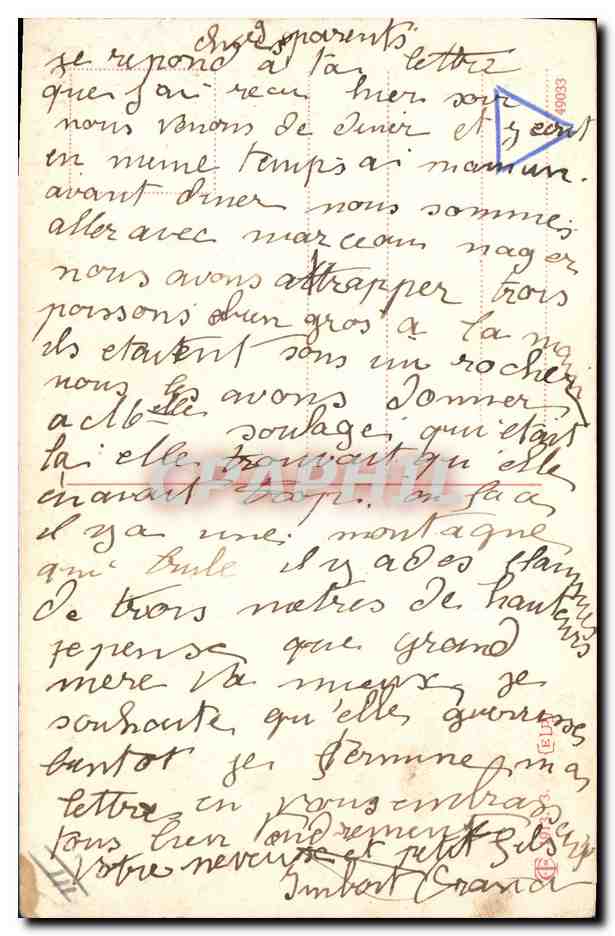 chers parents
je repond a ta lettre
que j'ai recu hier soir
nous venons de diner et j ecrit
en meme temps ai maman.
avant diner nous sommes
aller avec marceau nager
nous avons attrapper trois
poissons d'un gros a la main
ils etaient sous un rocher
nous les avons donner
a Melle soulage qui était
la elle trouvait qu'elle
en avait trop.
il y a une montagne
qui brule il y a des flammes
de trois mètres de hauteurs
je pense que grand
mere va mieux, je
souhaite qu'elle guerrisse
bientot je termine ma
lettre en vous embrassant
tous bien tendrement
Votre neveu et petit fils
Imbert Grand
49033
CPAPHIL